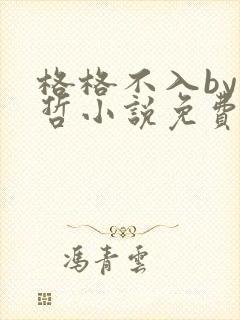 格格不入by
哲小說免費
馮青雲